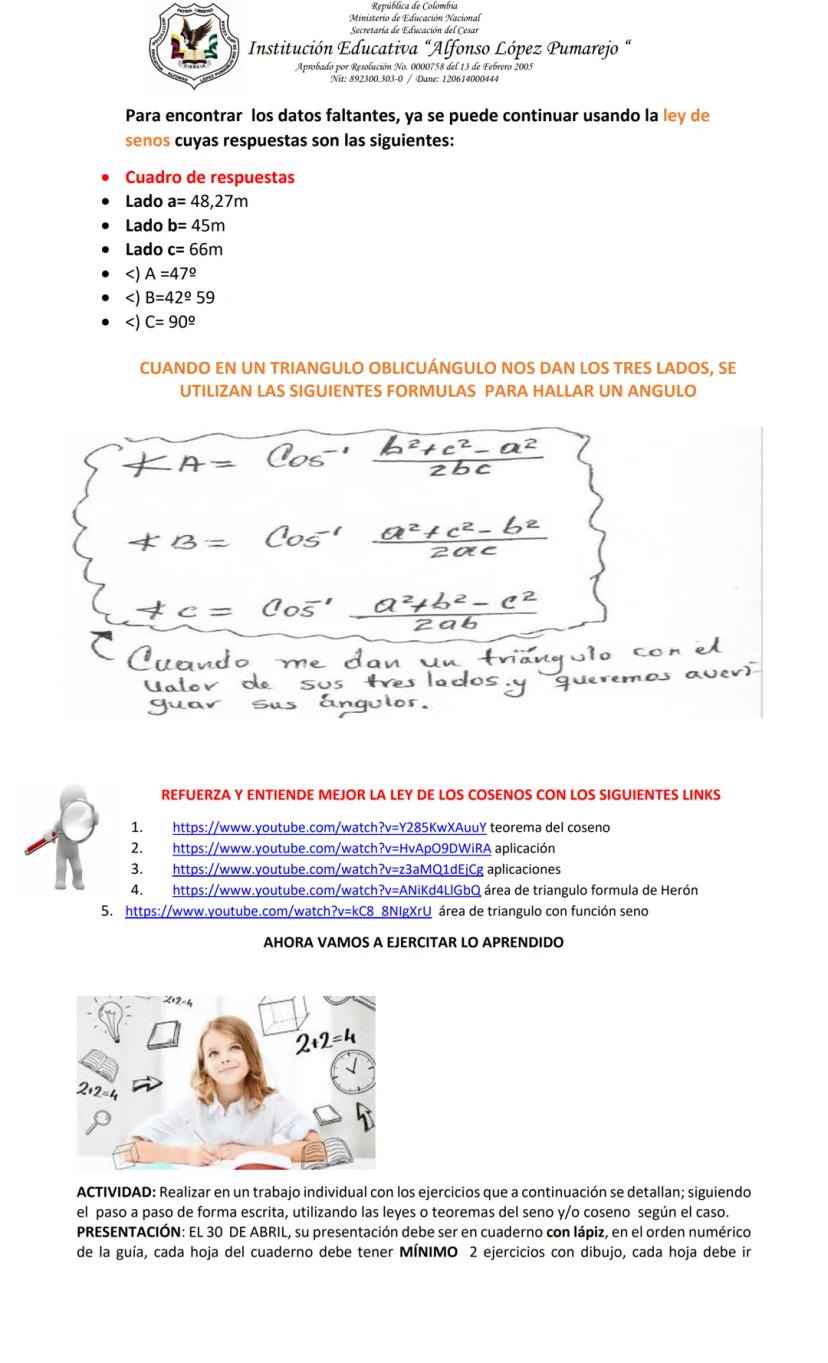 República de Colombia
Ministerio de Educación Nacional
Secretaría de Educación del Cesar
Institución Educativa “Alfonso López Pumarejo “
Aprobado por Resolución No. 0000758 del 13 de Febrero 2005
Nit: 892300.303-0 / Dane: 120614000444
Para encontrar los datos faltantes, ya se puede continuar usando la ley de
senos cuyas respuestas son las siguientes:
• Cuadro de respuestas
• Lado a= 48,27m
• Lado b= 45m
• Lado c= 66m
• <) A =47º
• <) B=42º 59
• <) C= 90º
CUANDO EN UN TRIANGULO OBLICUÁNGULO NOS DAN LOS TRES LADOS, SE
UTILIZAN LAS SIGUIENTES FORMULAS PARA HALLAR UN ANGULO
∡ A = Cos⁻¹ b²+c²-a² / 2bc
∡ B = Cos⁻¹ a²+c²-b² / 2ac
∡ C = Cos⁻¹ a²+b²-c² / 2ab
Cuando me dan un triángulo con el
valor de sus tres lados y queremos averi-
guar sus ángulos.
REFUERZA Y ENTIENDE MEJOR LA LEY DE LOS COSENOS CON LOS SIGUIENTES LINKS
1. https://www.youtube.com/watch?v=Y285KwXAuuY teorema del coseno
2. https://www.youtube.com/watch?v=HvApO9DWiRA aplicación
3. https://www.youtube.com/watch?v=z3aMQ1dEjCg aplicaciones
4. https://www.youtube.com/watch?v=ANiKd4LlGbQ área de triangulo formula de Herón
5. https://www.youtube.com/watch?v=kC8_8NIgXrU área de triangulo con función seno
AHORA VAMOS A EJERCITAR LO APRENDIDO
2+2=4
2+2=4
2+2=4
ACTIVIDAD: Realizar en un trabajo individual con los ejercicios que a continuación se detallan; siguiendo
el paso a paso de forma escrita, utilizando las leyes o teoremas del seno y/o coseno según el caso.
PRESENTACIÓN: EL 30 DE ABRIL, su presentación debe ser en cuaderno con lápiz, en el orden numérico
de la guía, cada hoja del cuaderno debe tener MÍNIMO 2 ejercicios con dibujo, cada hoja debe ir